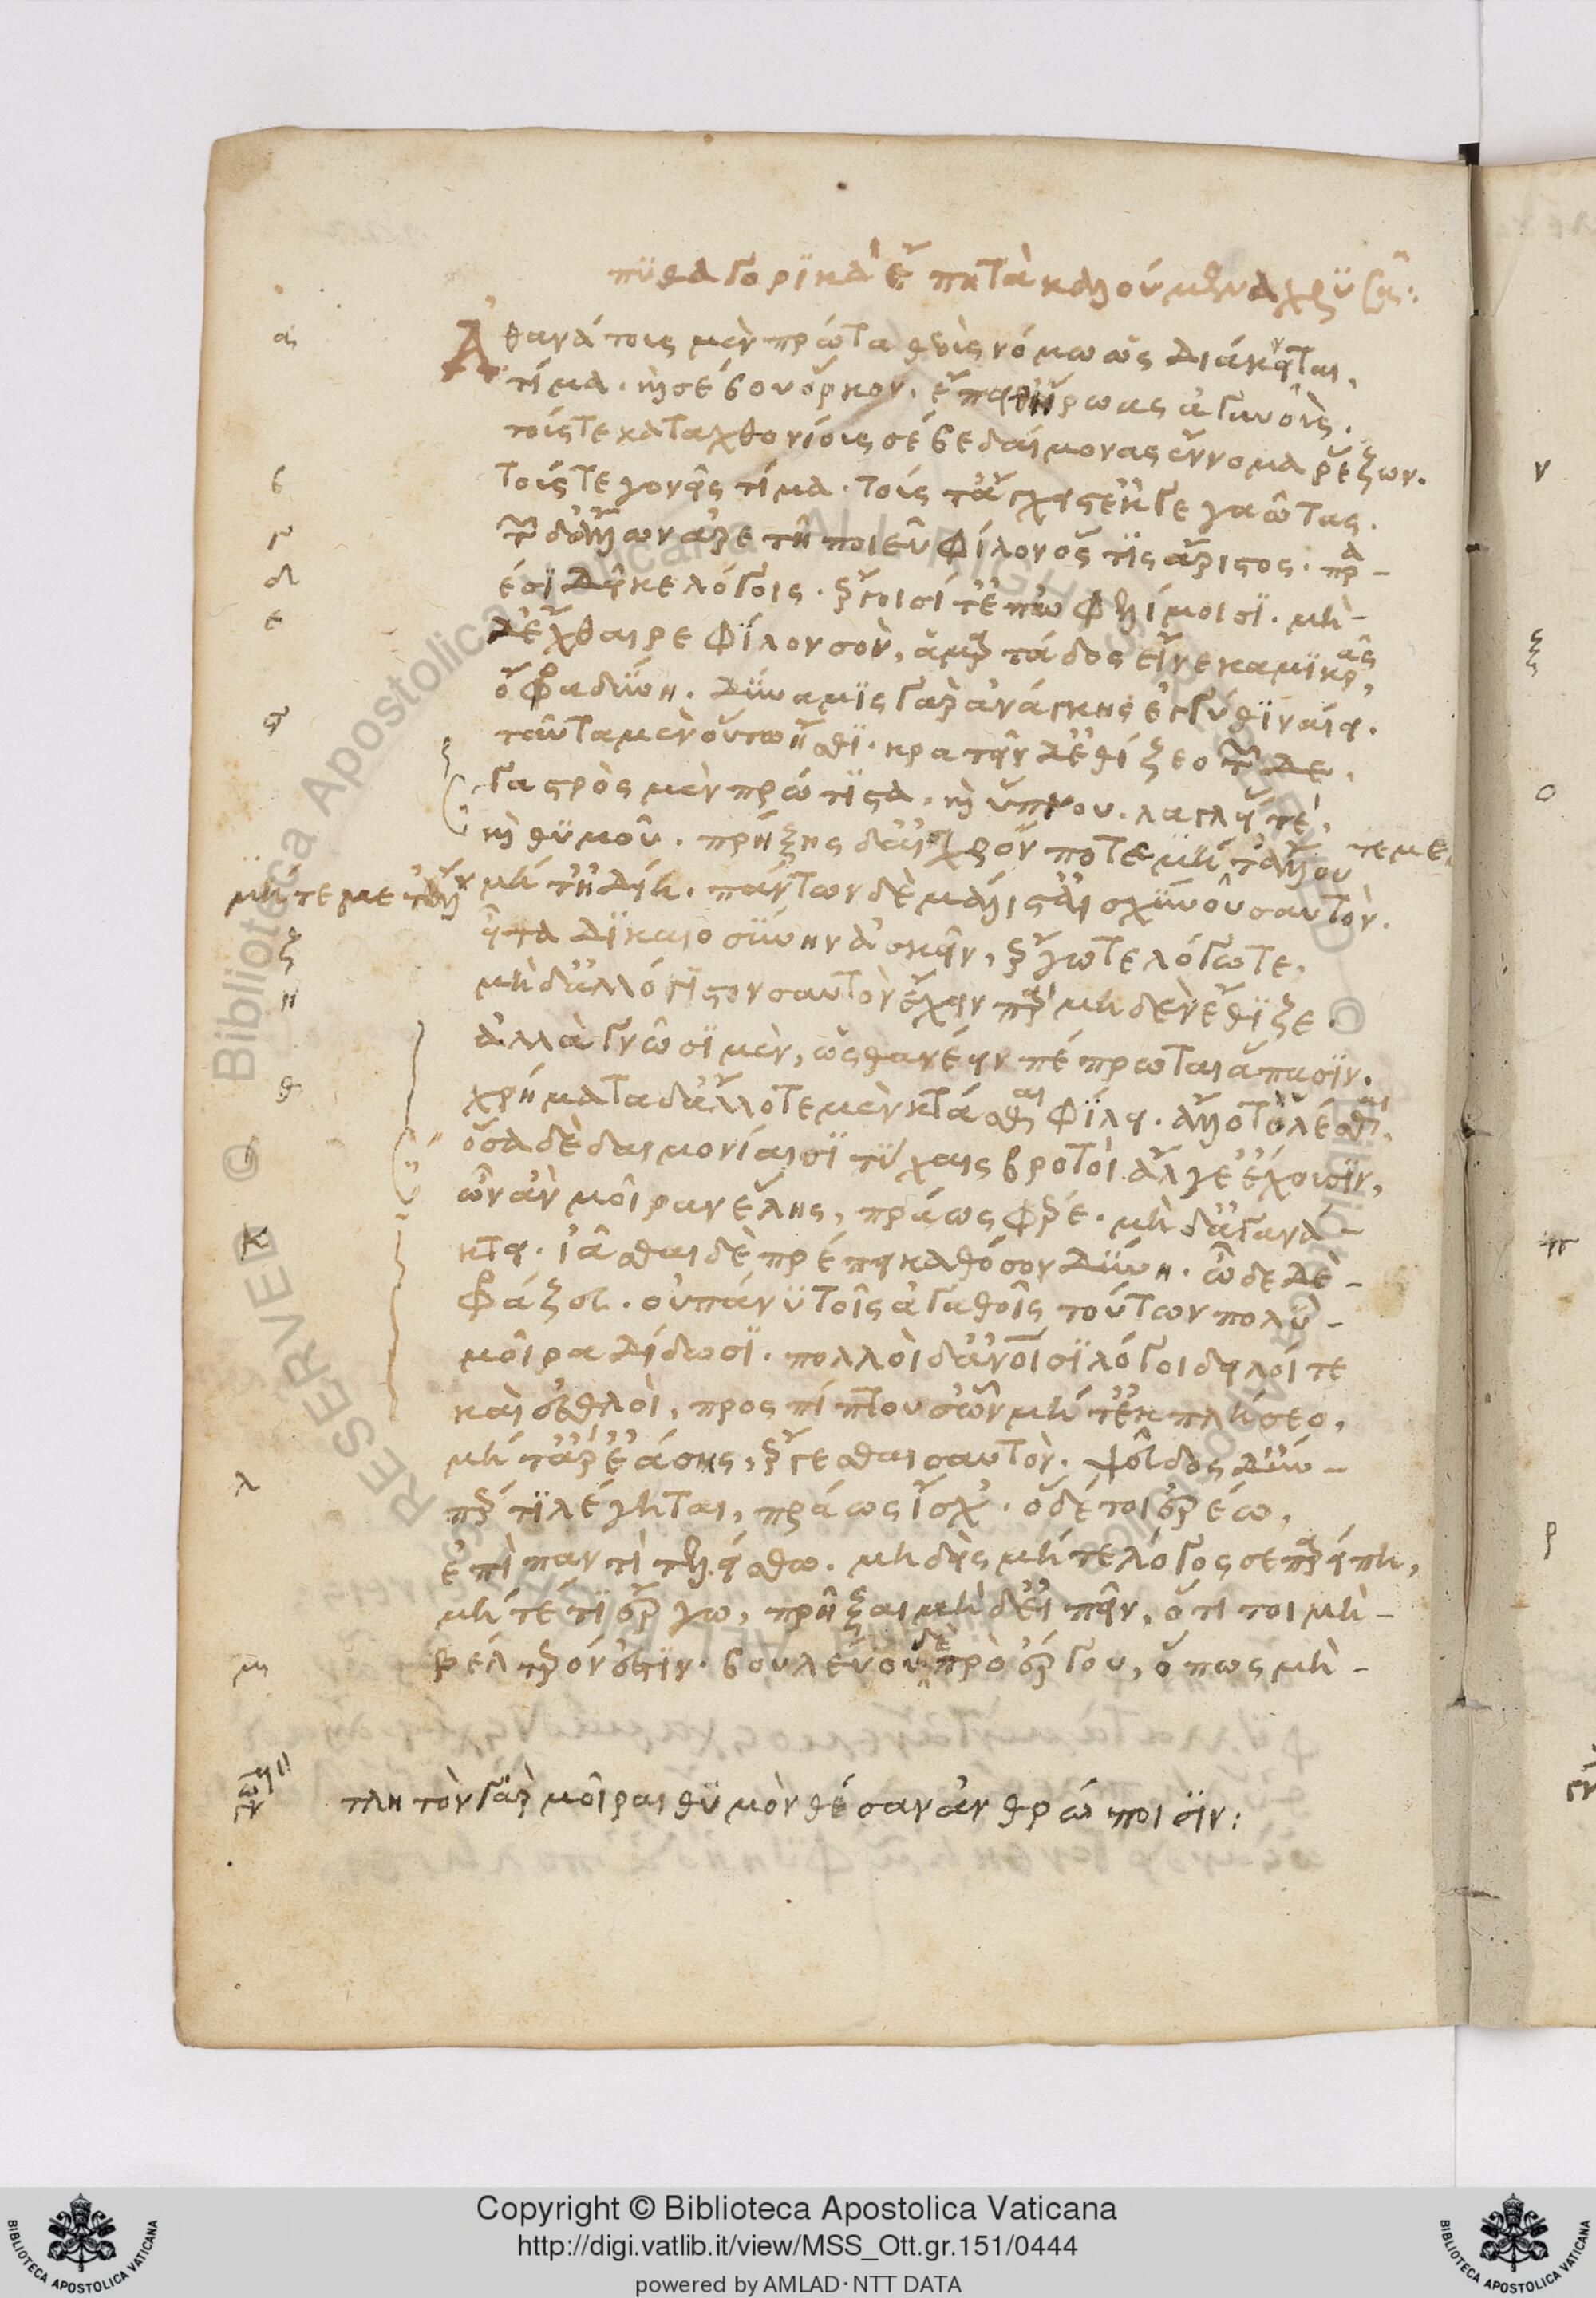 πυθαγορικὰ ἔπη τὰ καλούμενα χρυσᾶ:
Ἀθανάτοις μὲν πρῶτα θεοὺς νόμω ὡς διάκεινται,
α
τίμα. καὶ σέβου ὅρκον. ἔπειθ' ἥρωας ἀγαυοὺς.
τοὺς τε καταχθονίους σέβε δαίμονας ἔννομα ῥέζων.
β
τούς τε γονεῖς τίμα. τοὺς τ' ἄγχις ἐκγεγαῶτας.
γ
τῶν δ' ἄλλων ἀρετῆ ποιεῦ φίλον ὅς τις ἄριστος. πρα-
δ
έσι δ' εἶκε λόγοις. ἔργοισί τ' ἐπωφελίμοισι. μὴ-
ε
δ' ἔχθαιρε φίλον σὸν, ἁμαρτάδος εἵνεκα μικρᾶς,
ὄφρα δύνη. δύναμις γὰρ ἀνάγκης ἐγγύθι ναίει.
ς
ταῦτα μὲν οὕτω ἴσθι. κρατεῖν δ' ἐθίζεο τῶν δε,
γαστρὸς μὲν πρώτιστα. καὶ ὕπνου. λαγνείης τέ,
καὶ θυμοῦ. πρήξης δ' αἰσχρόν ποτε μήτ' ἄλλου
τεμε
μήτε μετ' ἄλλου
μήτ' ἰδίη. πάντων δὲ μάλιστ' αἰσχύνου σαυτὸν.
ζ
εἶτα δικαιοσύνην ἀσκεῖν, ἔργω τε λόγω τε,
η
μὴ δ' ἀλόγιστον σαυτὸν ἔχειν περὶ μηδὲν ἔθιζε.
ἀλλὰ γνῶσι μὲν, ὡς θανέειν πέπρωται ἅπασιν.
θ
χρήματα δ' ἄλλοτε μὲν κτᾶσθαι φίλει. ἄλλοτ' ὀλέσθαι,
ι
ὅσα δὲ δαιμονίαισι τύχαις βροτοὶ ἄλγε' ἔχουσιν,
ὧν ἂν μοῖραν ἕλης, πράως φέρε. μὴ δ' ἀγανά-
κ
κτει. ἰᾶσθαι δὲ πρέπει καθόσον δύνη. ὧδε δὲ-
φράζου. οὐ πάνυ τοῖς ἀγαθοῖς τούτων πολὺ-
μοῖρα δίδωσι. πολλοὶ δ' ἀνθρώποισι λόγοι δειλοί τε
καὶ ἐσθλοὶ, προσπίπτουσ' ὧν μήτ' ἐκπλήσεο,
μήτ' ἄρ' ἐάσης, εἴργεσθαι σαυτὸν. ψεῦδος δ' ἤν-
λ
περ τι λέγηται, πράως ἴσχ'. ὃ δέ τοι ἐρέω,
ἐπὶ παντὶ τελείσθω. μηδεὶς μήτε λόγος σε παρείπη,
μήτέ τι ἔργω, πρῆξαι μὴ δ' εἰπεῖν, ὅτι τοι μὴ-
μ
βέλτερόν ἐστιν. βουλεύου δὲ πρὸ ἔργου, ὅπως μὴ-
τλητὸν γὰρ μοῖραι θυμὸν θέσαν ἀνθρώποισιν:
ν
ξ
ο
π
ρ
RESERVED © Biblioteca Apostolica Vaticana ALL RIGHTS RESERVED © Biblioteca Apostolica Vaticana ALL RIGHTS
Copyright © Biblioteca Apostolica Vaticana
http://digi.vatlib.it/view/MSS_Ott.gr.151/0444
powered by AMLAD·NTT DATA
BIBLIOTECA APOSTOLICA VATICANA
BIBLIOTECA APOSTOLICA VATICANA